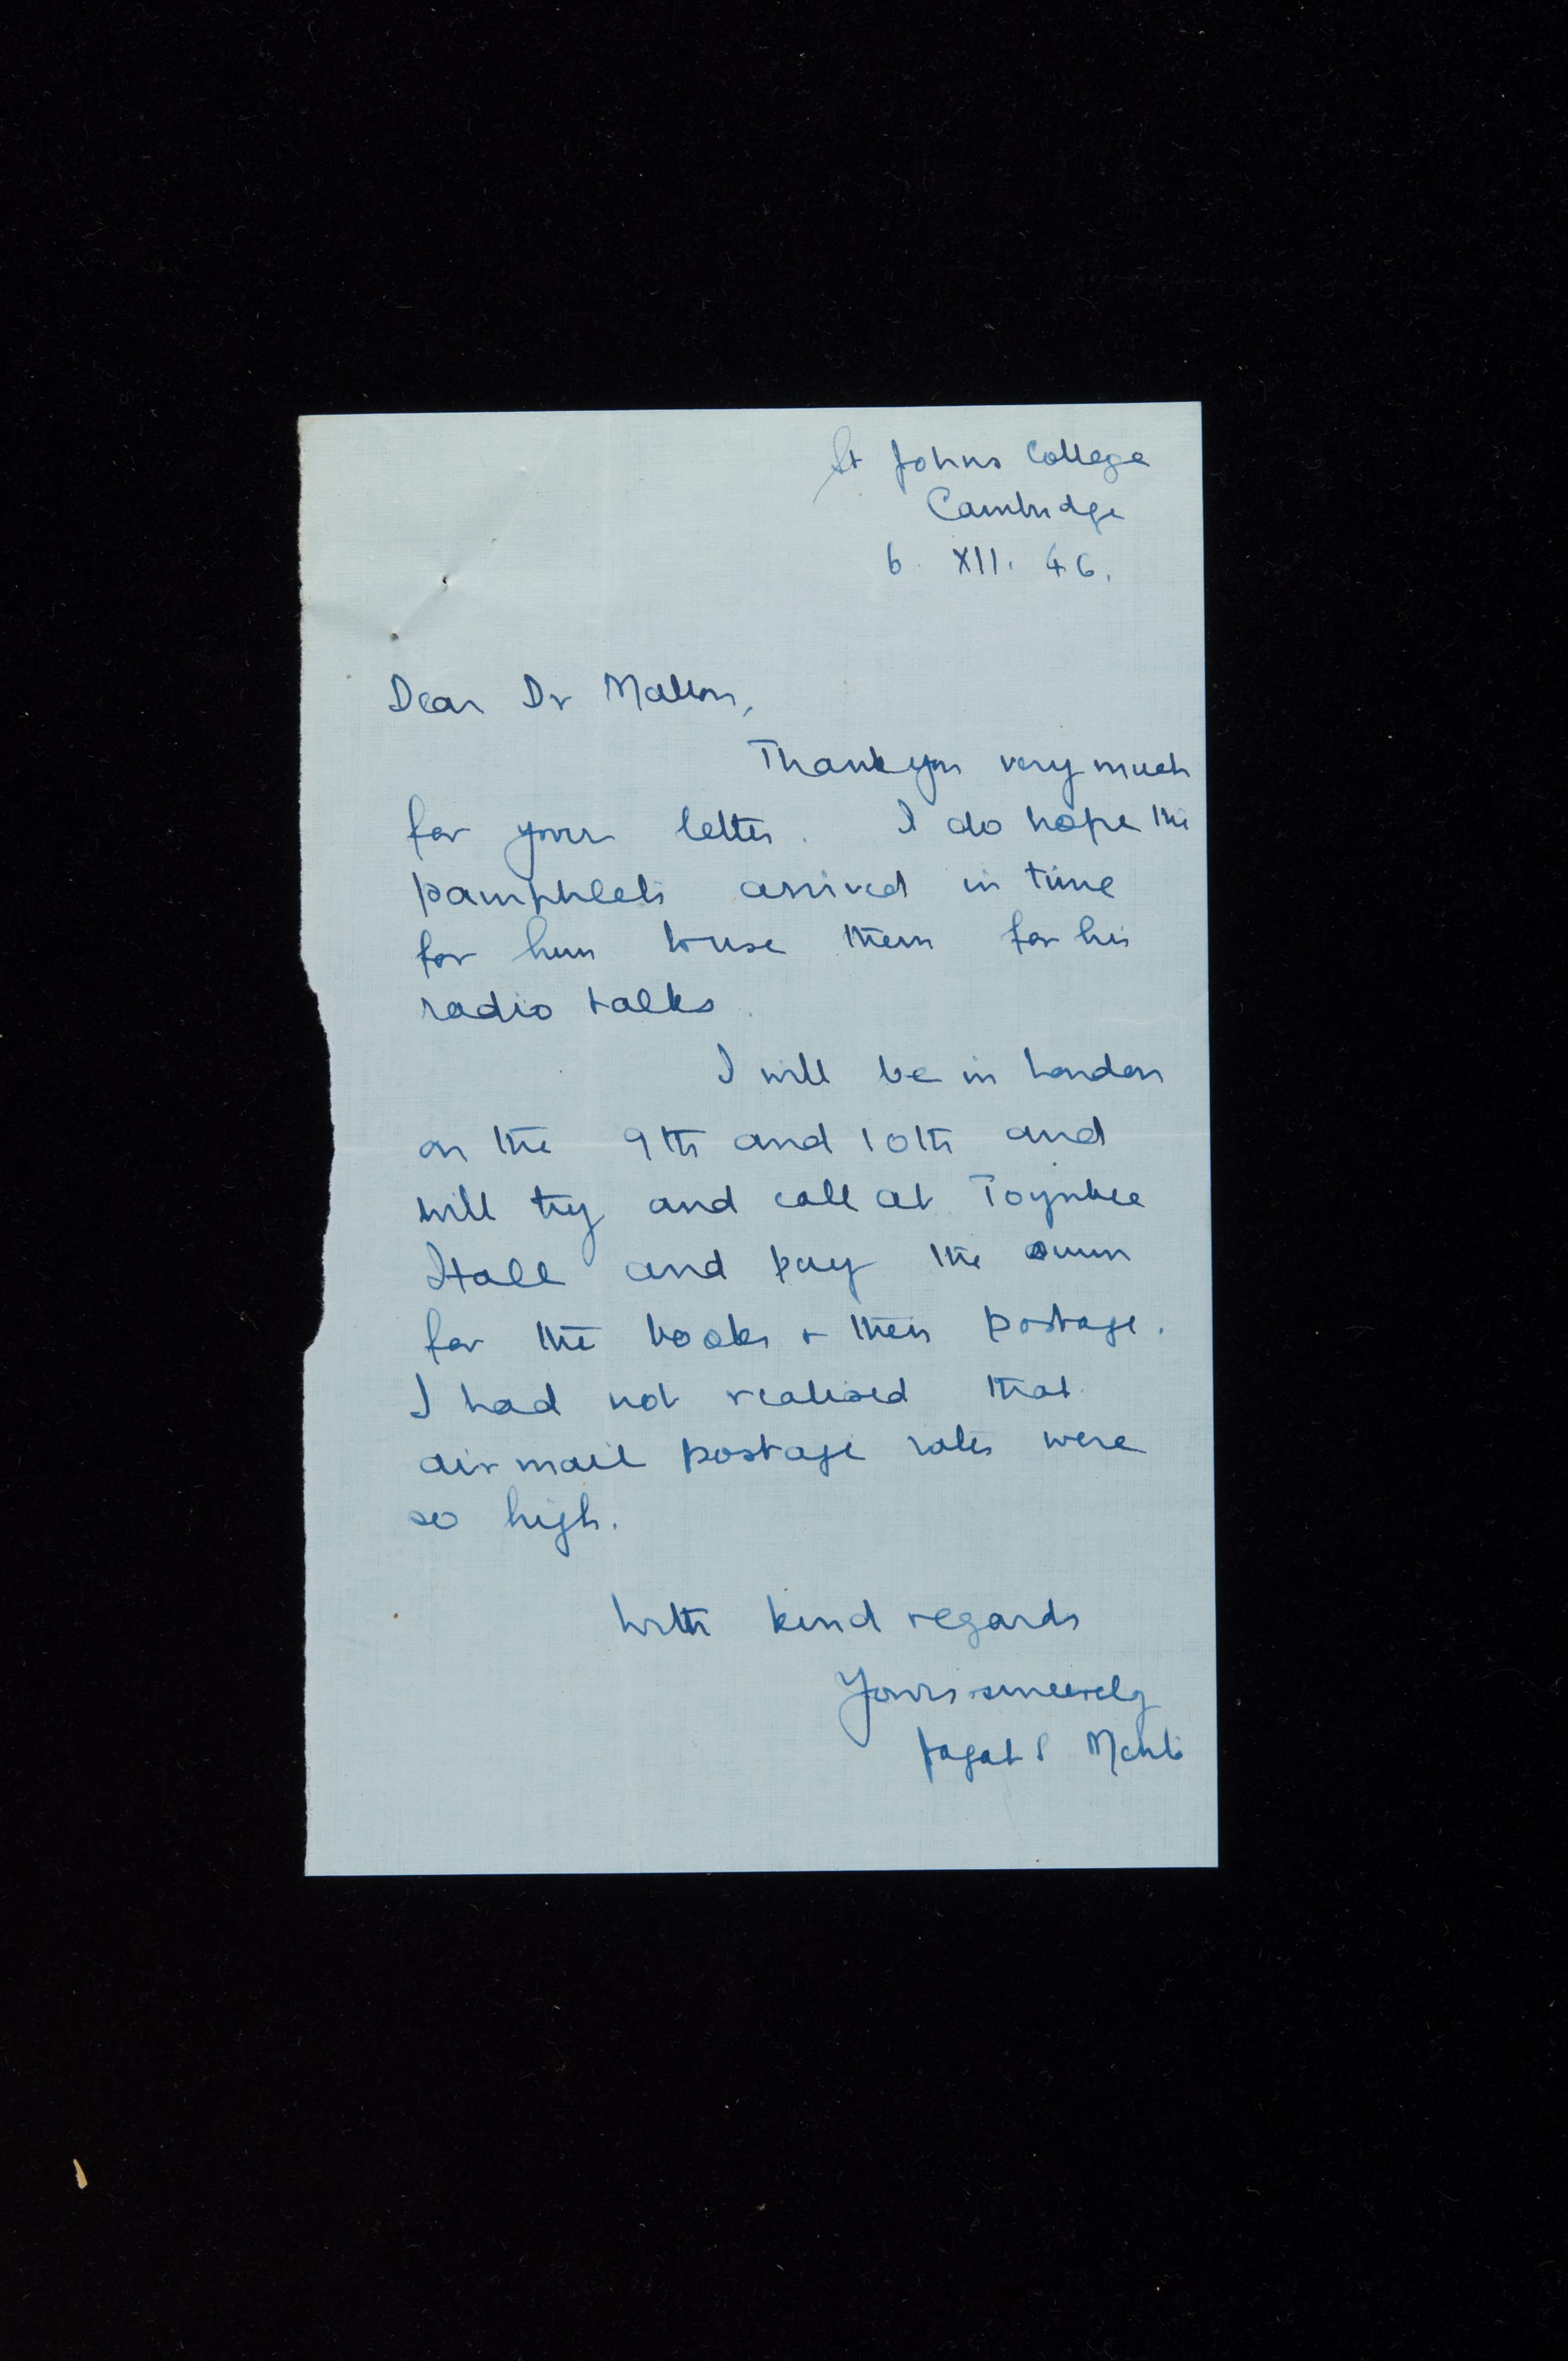 St Johns College
Cambridge
6. XII. 46.
Dear Dr Mallon,
Thank you very much
for your letter. I do hope the
pamphlets arrived in time
for him to use them for his
radio talks.
I will be in London
on the 9th and 10th and
will try and call at Toynbee
Hall and pay the sum
for the books + their postage.
I had not realised that
air mail postage rates were
so high.
With kind regards
Yours sincerely
Jagat S Mehta